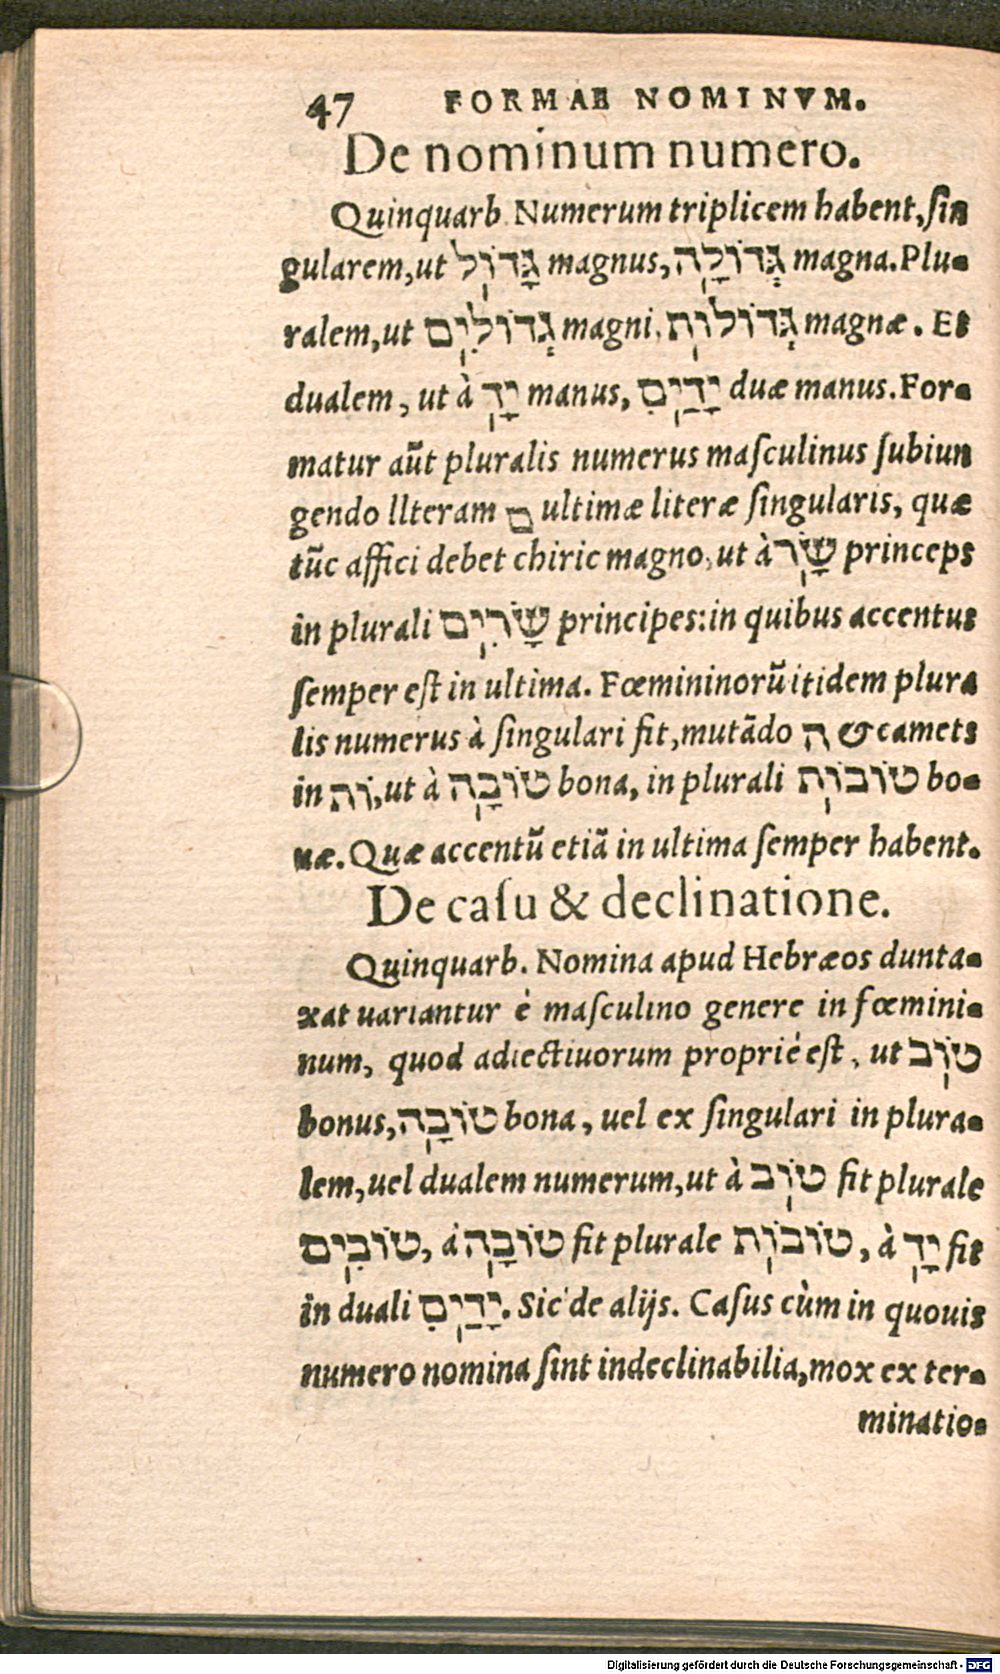 47 FORMAE NOMINVM.
De nominum numero.
Quinquarb. Numerum triplicem habent, ſin
gularem, ut גָּדוֹל magnus, גְּדוֹלָה magna. Plu-
ralem, ut גְדוֹלִים magni, גְדוֹלוֹת magnæ. Et
dualem, ut à יָד manus, יָדַיִם duæ manus. For-
matur aũt pluralis numerus maſculinus ſubiun
gendo llteram ם ultimæ literæ ſingularis, quæ
tũc affici debet chiric magno, ut à שָׂר princeps
in plurali שָׂרִים principes: in quibus accentus
ſemper eſt in ultima. Fœmininorũ itidem plura
lis numerus à ſingulari fit, mutãdo ה & camets
in וֹת, ut à טוֹבָה bona, in plurali טוֹבוֹת bo-
næ. Quæ accentũ etiã in ultima ſemper habent.
De caſu & declinatione.
Quinquarb. Nomina apud Hebræos dunta-
xat uariantur é maſculino genere in fœmini-
num, quod adiectiuorum proprié eſt, ut טוֹב
bonus, טוֹבָה bona, uel ex ſingulari in plura-
lem, uel dualem numerum, ut à טוֹב fit plurale
טוֹבִים, à טוֹבָה fit plurale טוֹבוֹת, à יָד fit
in duali יָדַיִם. Sic de alijs. Caſus cùm in quouis
numero nomina ſint indeclinabilia, mox ex ter-
minatio-
Digitalisierung gefördert durch die Deutsche Forschungsgemeinschaft - DFG